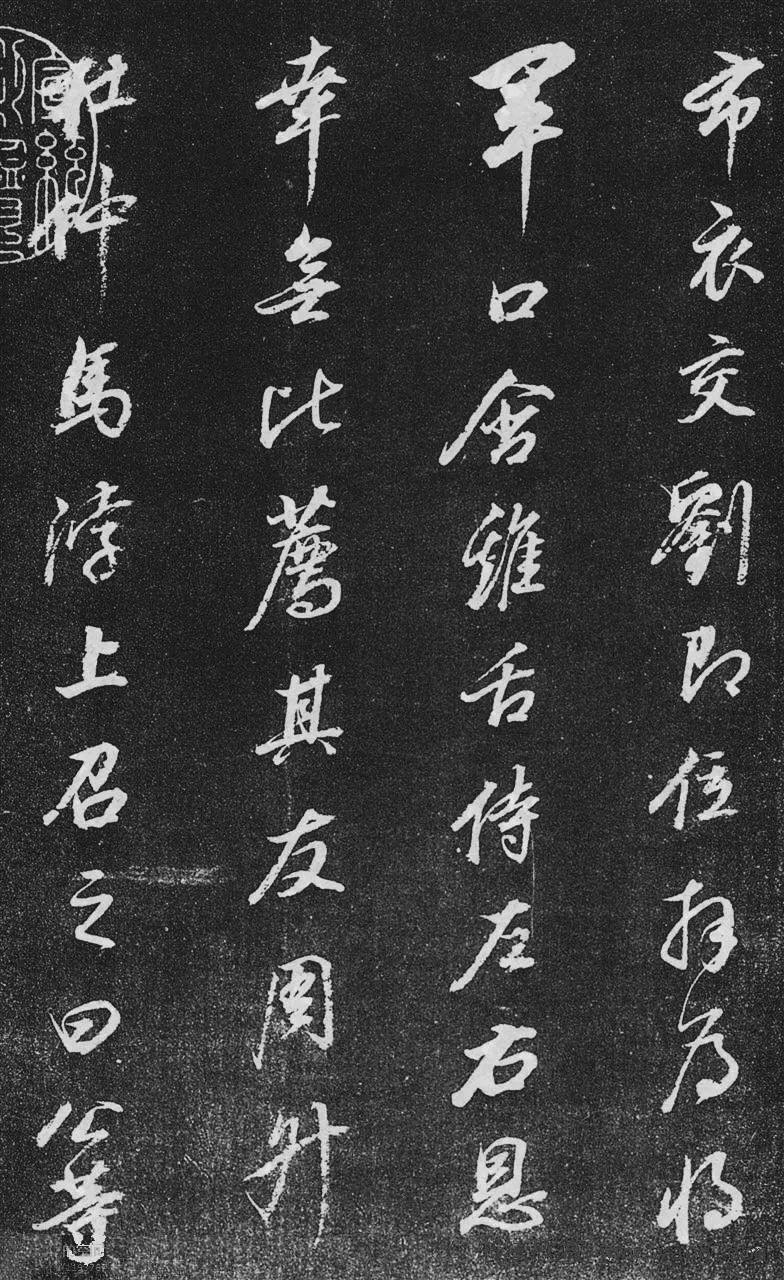 布衣交劉即位拜為將
軍口含雞舌侍左右恩
幸無比薦其友周升
杜种馬浮上召之曰公等
宣統